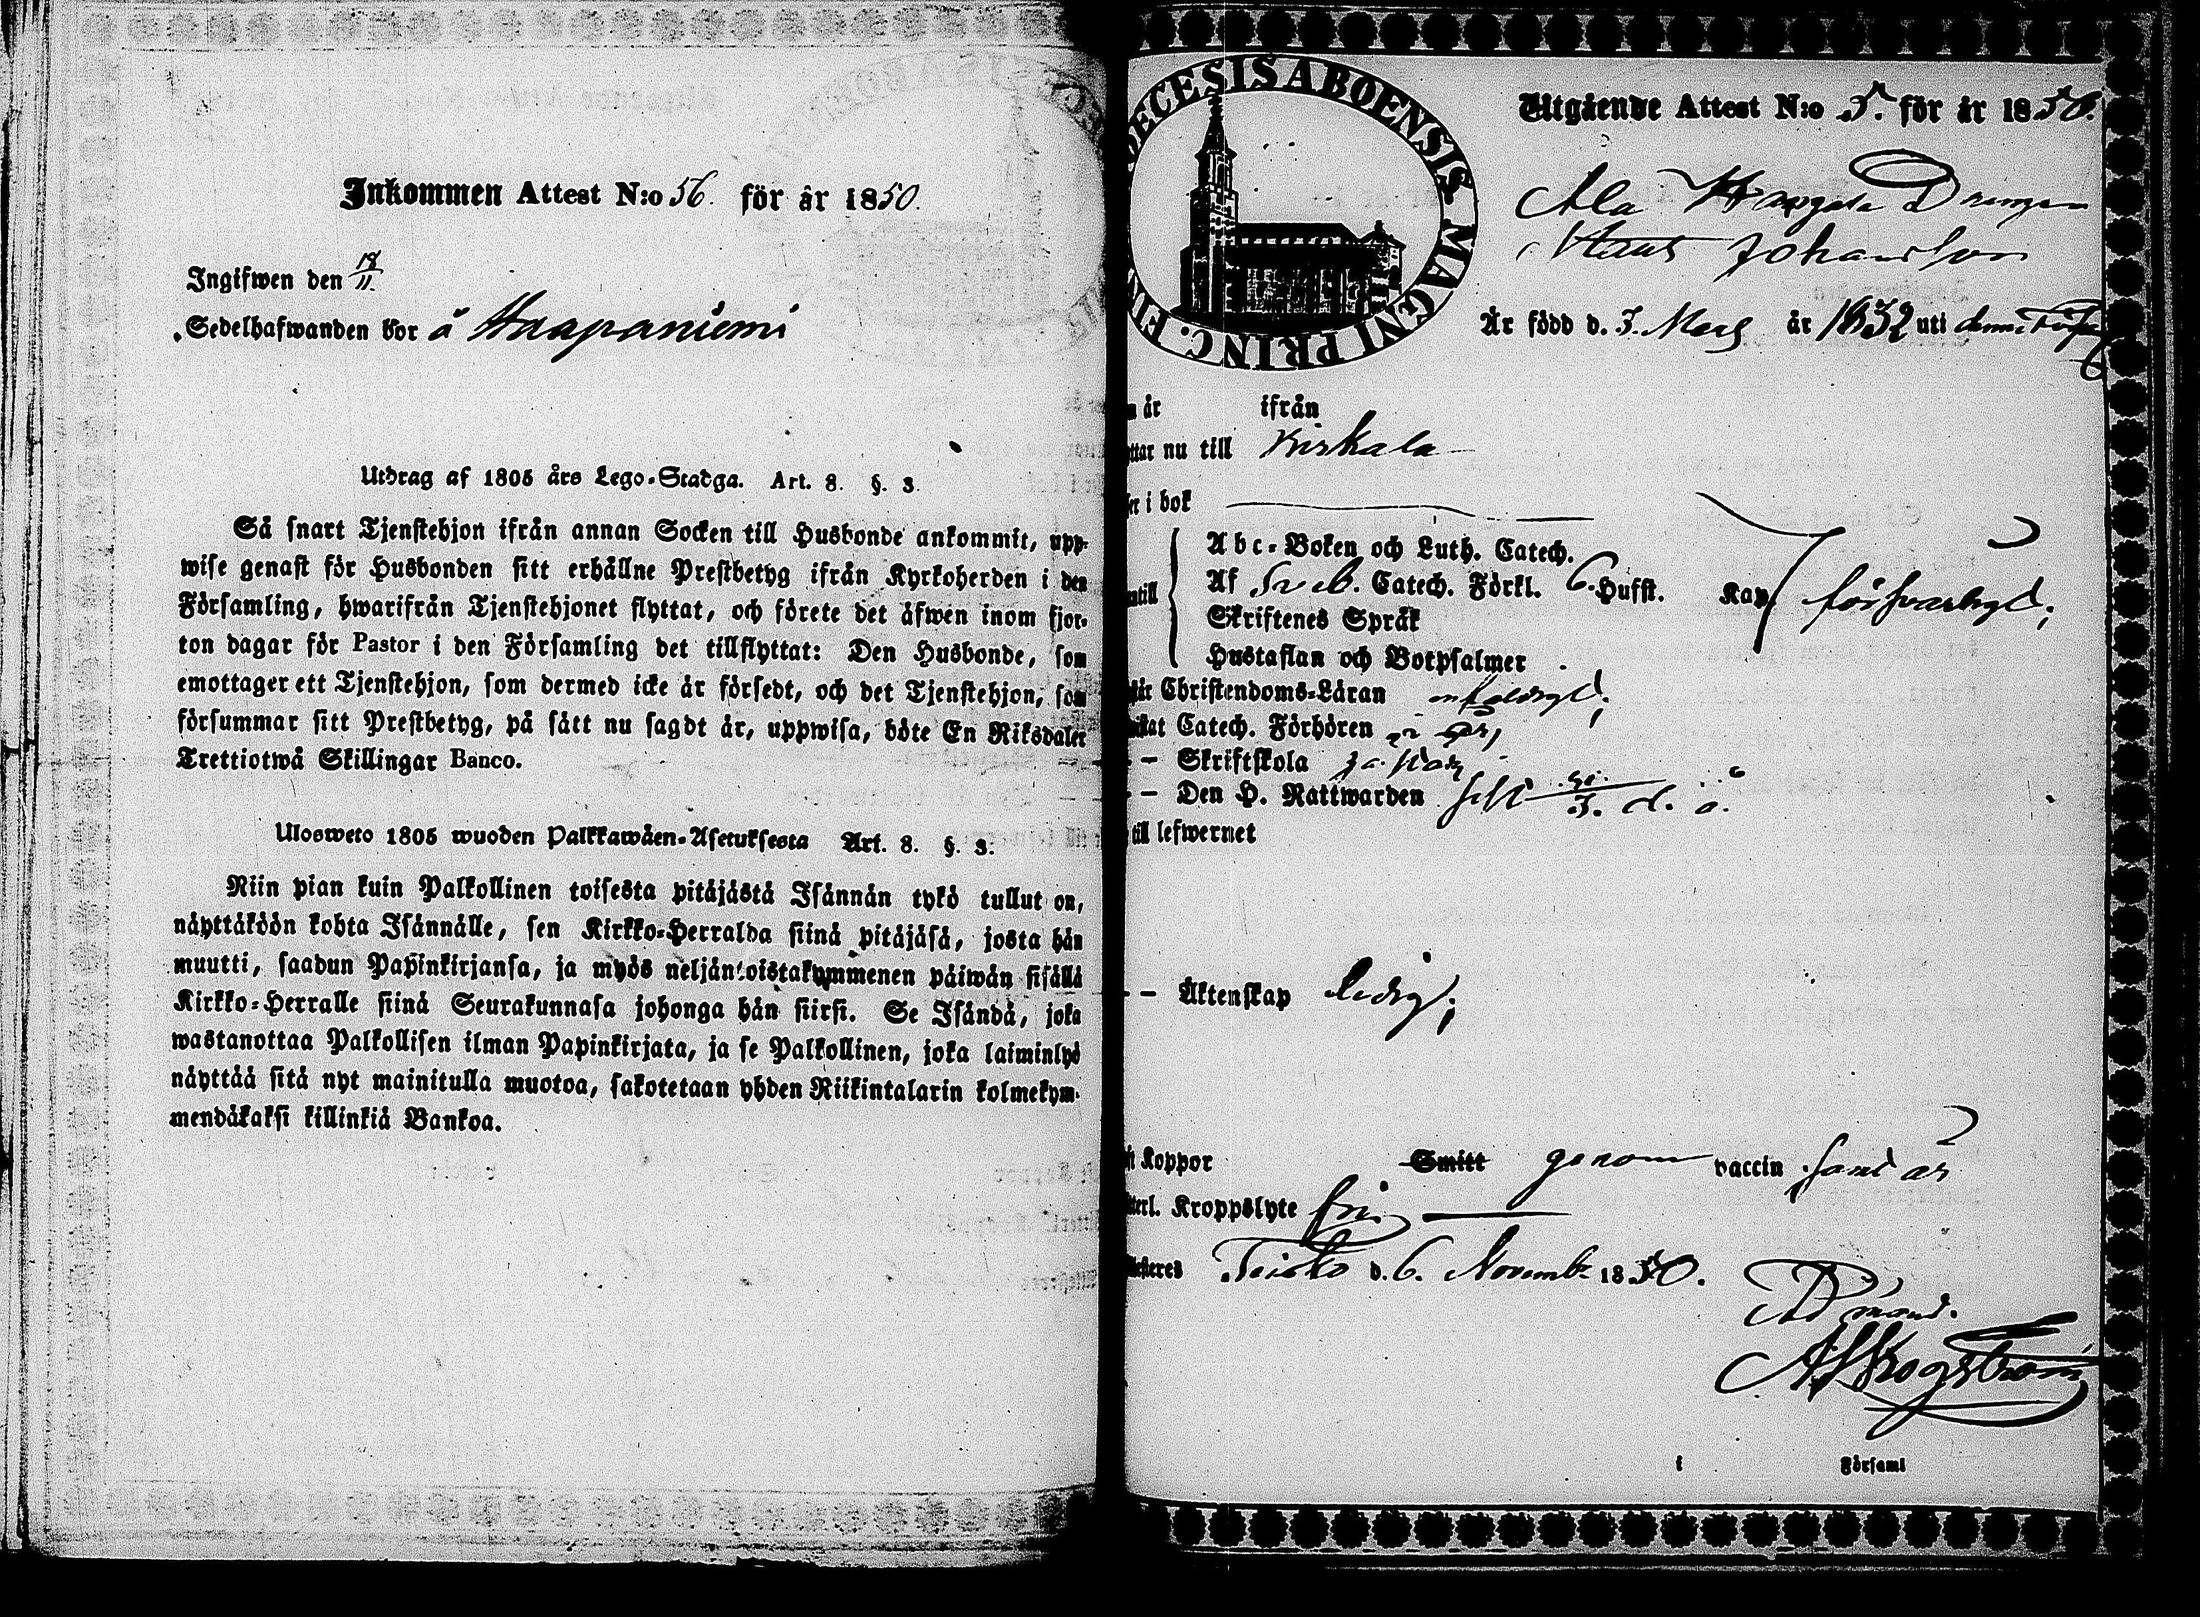 Inkommen Attest N:o 56. för år 1850.
Ingifwen den 18/11.
Sedelhafwanden bor å Haapaniemi
Utdrag af 1805 års Lego-Stadga. Art. 8. §. 3.
Så snart Tjenstehjon ifrån annan Socken till Husbonde ankommit, upp-
wise genast för Husbonden sitt erhållne Prestbetyg ifrån Kyrkoherden i den
Församling, hwarifrån Tjenstehjonet flyttat, och förete det äfwen inom fjor-
ton dagar för Pastor i den Församling det tillflyttat: Den Husbonde, som
emottager ett Tjenstehjon, som dermed icke är försedt, och det Tjenstehjon, som
försummar sitt Prestbetyg, på sätt nu sagdt är, uppwisa, böte En Riksdaler
Trettiotwå Skillingar Banco.
Ulosweto 1805 wuoden Palkkawäen-Asetuksesta Art. 8. §. 3.
Niin pian kuin Palkollinen toisesta pitäjästä Isännän tykö tullut on,
näyttäköön kohta Isännälle, sen Kirkko-Herralda siinä pitäjäsä, josta hän
muutti, saadun Papinkirjansa, ja myös neljäntoistakymmenen päiwän sisällä
Kirkko-Herralle siinä Seurakunnasa johonga hän siirsi. Se Isändä, joka
wastanottaa Palkollisen ilman Papinkirjata, ja se Palkollinen, joka laiminlyö
näyttää sitä nyt mainitulla muotoa, sakotetaan yhden Riikintalarin kolmekym-
mendäkaksi killinkiä Bankoa.
DECESIS ABOENSIS MAGNI PRINC. FIN
Utgående Attest N:o 5. för år 1850.
Ala Drängen
Johansson
Är född d. 3. Mars år 1832 uti denna
n år ifrån
ttar nu till Kirkala
ser i bok
Abc-Boken och Luth. Catech.
Af Sveb. Catech. Förkl. 6. Hufst. Kap. försvarligt;
ntill Skriftenes Språk
Hustaflan och Botpsalmer
står Christendoms-Läran enfaldigt;
istat Catech. Förhören
- - Skriftskola
- - Den H. Nattwarden sist /3. d. å.
till lefwernet
- - Äktenskap ledig;
ft Koppor Smitt genom vaccin samt är
tterl. Kroppslyte fri.
testeres Teisko d. 6. Novemb. 1850.
AFSkogström
i Församl